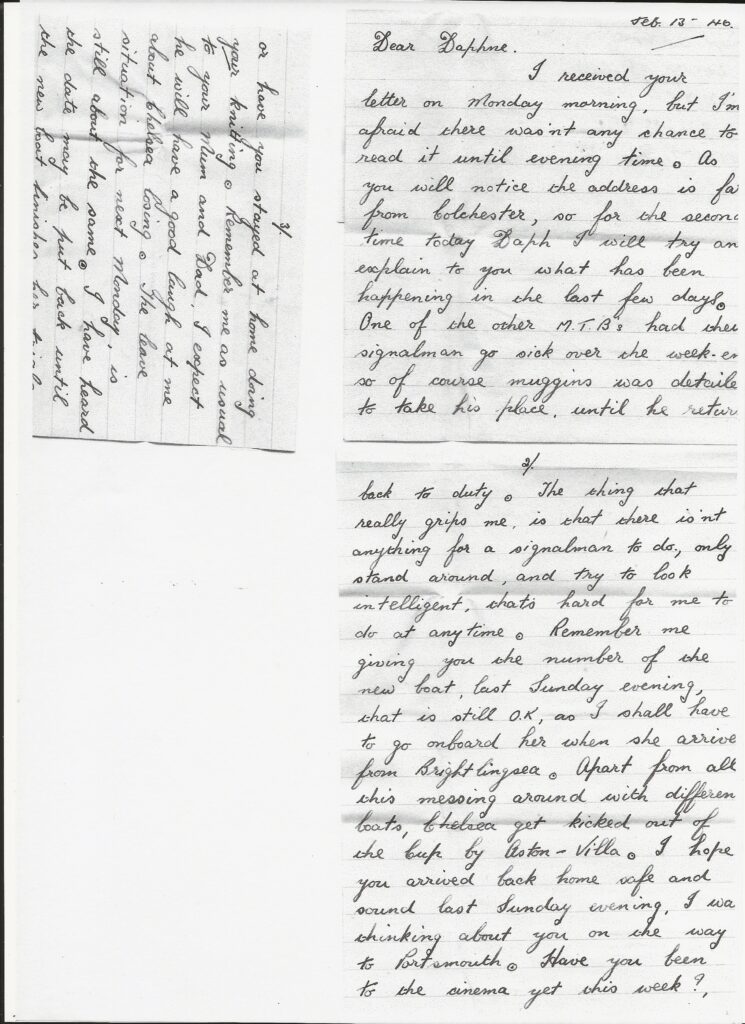 Feb. 13 - 46.
Dear Daphne.
I received your
letter on Monday morning, but I'm
afraid there was'nt any chance to
read it until evening time. As
you will notice the address is fa
from Colchester, so for the second
time today Daph I will try an
explain to you what has been
happening in the last few days.
One of the other M.T.B's had thei
signalman go sick over the week-en
so of course muggins was detaile
to take his place, until he return
2/.
back to duty. The thing that
really grips me, is that there is'nt
anything for a signalman to do, only
stand around, and try to look
intelligent, that's hard for me to
do at anytime. Remember me
giving you the number of the
new boat, last Sunday evening,
that is still O.K, as I shall have
to go onboard her when she arrive
from Brightlingsea. Apart from all
this messing around with differen
boats, Chelsea get kicked out of
the Cup by Aston-Villa. I hope
you arrived back home safe and
sound last Sunday evening, I wa
thinking about you on the way
to Portsmouth. Have you been
to the cinema yet this week?,
3/
or have you stayed at home doing
your knitting. Remember me as usual
to your Mum and Dad, I expect
he will have a good laugh at me
about Chelsea losing. The leave
situation for next Monday, is
still about the same. I have heard
the date may be put back until
the new boat finishes her